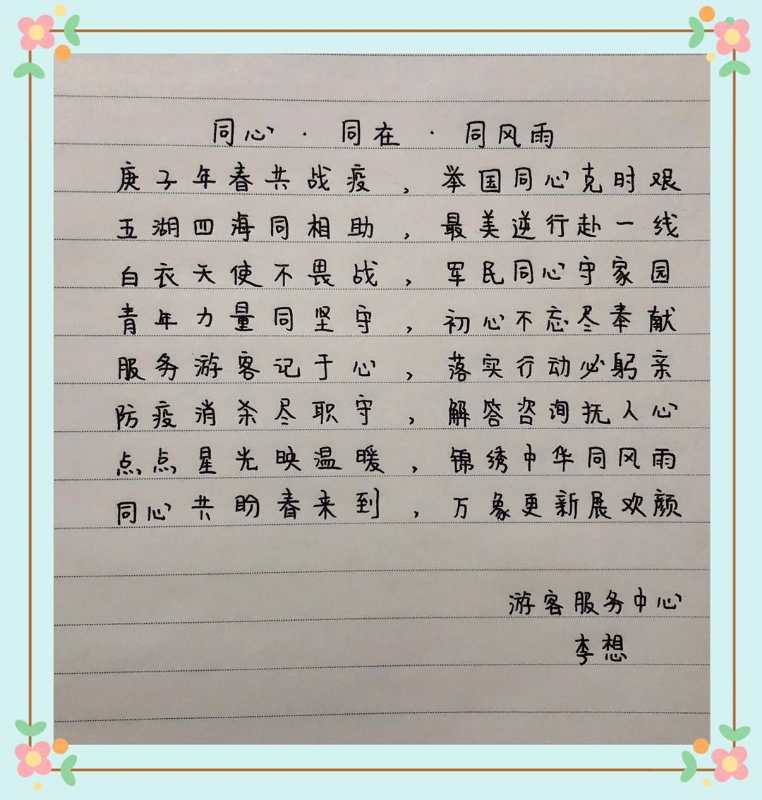 同心·同在·同风雨
庚子年春共战疫，举国同心克时艰
五湖四海同相助，最美逆行赴一线
白衣天使不畏战，军民同心守家园
青年力量同坚守，初心不忘尽奉献
服务游客记于心，落实行动必躬亲
防疫消杀尽职守，解答咨询抚人心
点点星光映温暖，锦绣中华同风雨
同心共盼春来到，万象更新展欢颜
游客服务中心
李想